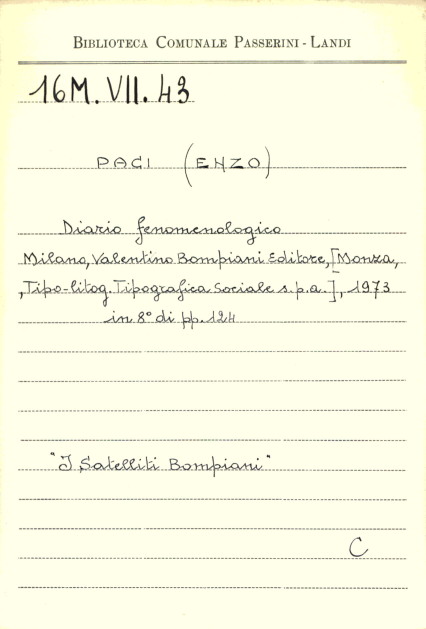 BIBLIOTECA COMUNALE PASSERINI - LANDI
16M. VII. 43
PACI (ENZO)
Diario fenomenologico
Milano, Valentino Bompiani Editore, [Monza,
, Tipo-litog. Tipografica Sociale s.p.a.], 1973
in 8° di pp. 124
"I Satelliti Bompiani"
C